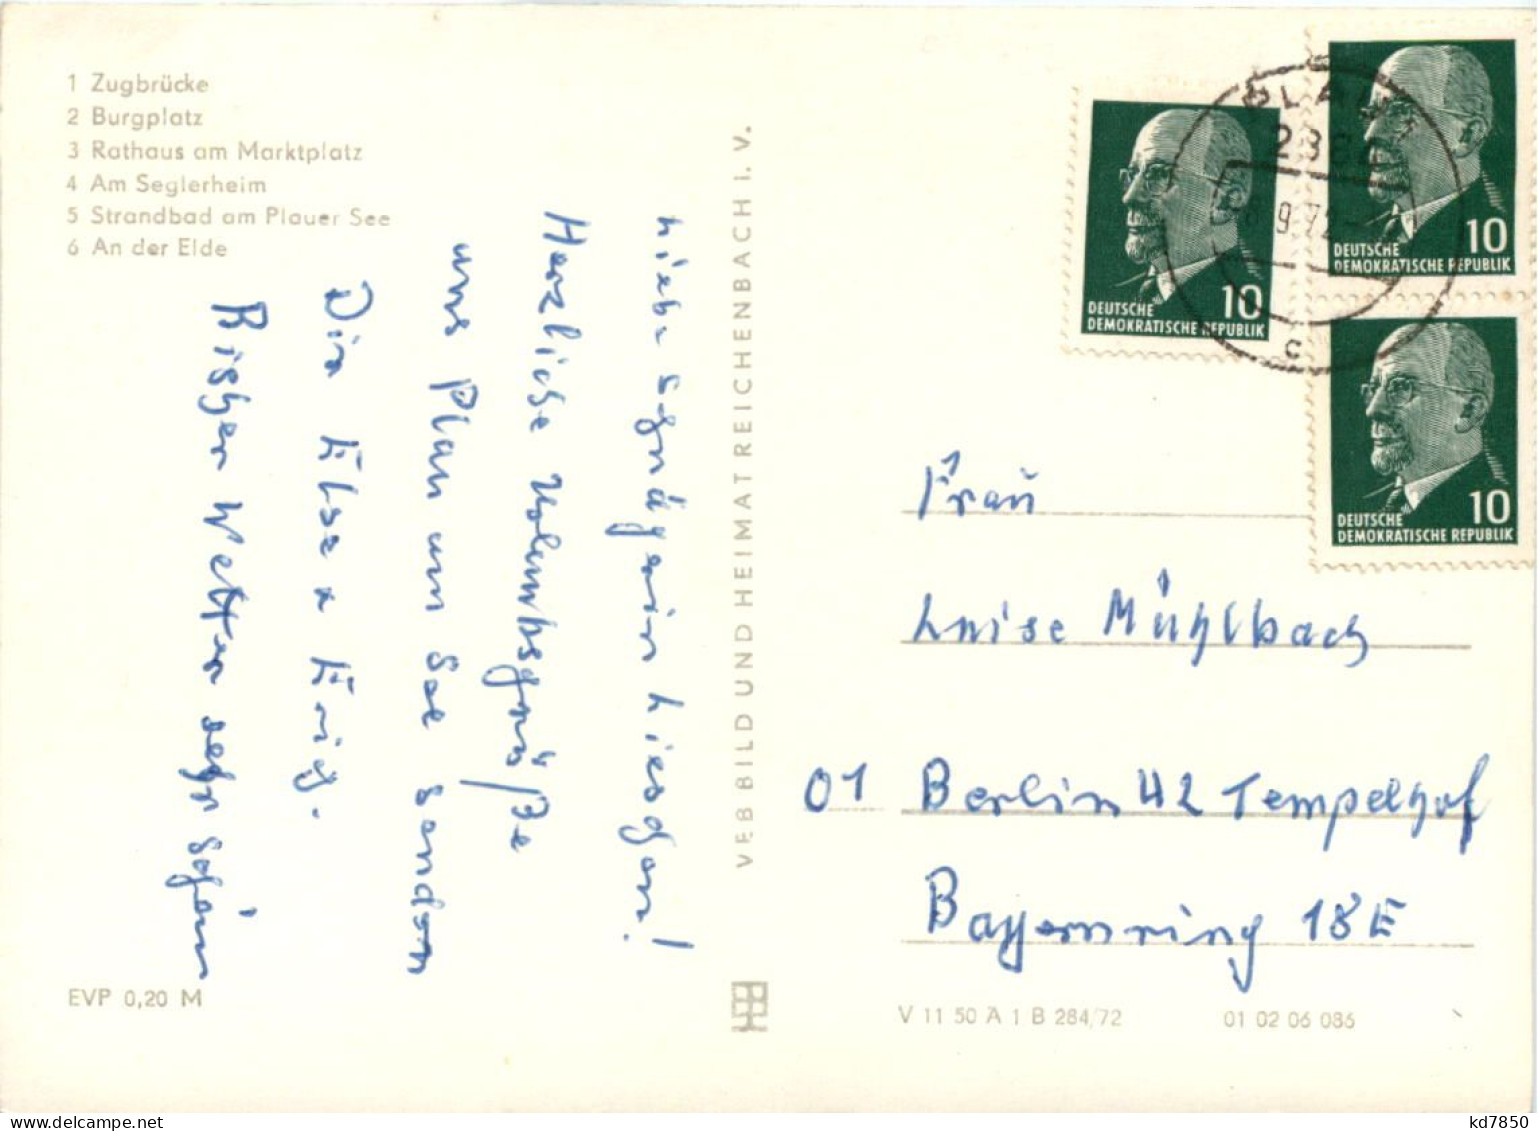 1 Zugbrücke
2 Burgplatz
3 Rathaus am Marktplatz
4 Am Seglerheim
5 Strandbad am Plauer See
6 An der Elde
Herzliche Urlaubsgrüße
aus Plau am See senden
Dir Elsa u
Bisher Wetter sehr schön
EVP 0,20 M
VEB BILD UND HEIMAT REICHENBACH I. V.
V 11 50 A 1 B 284/72
01 02 06 086
PLAU
9.72
c
10
DEUTSCHE
DEMOKRATISCHE REPUBLIK
10
DEUTSCHE
DEMOKRATISCHE REPUBLIK
10
DEUTSCHE
DEMOKRATISCHE REPUBLIK
Frau
Luise Mühlbach
01 Berlin 42 Tempelhof
Bayernring 18E
kd7850